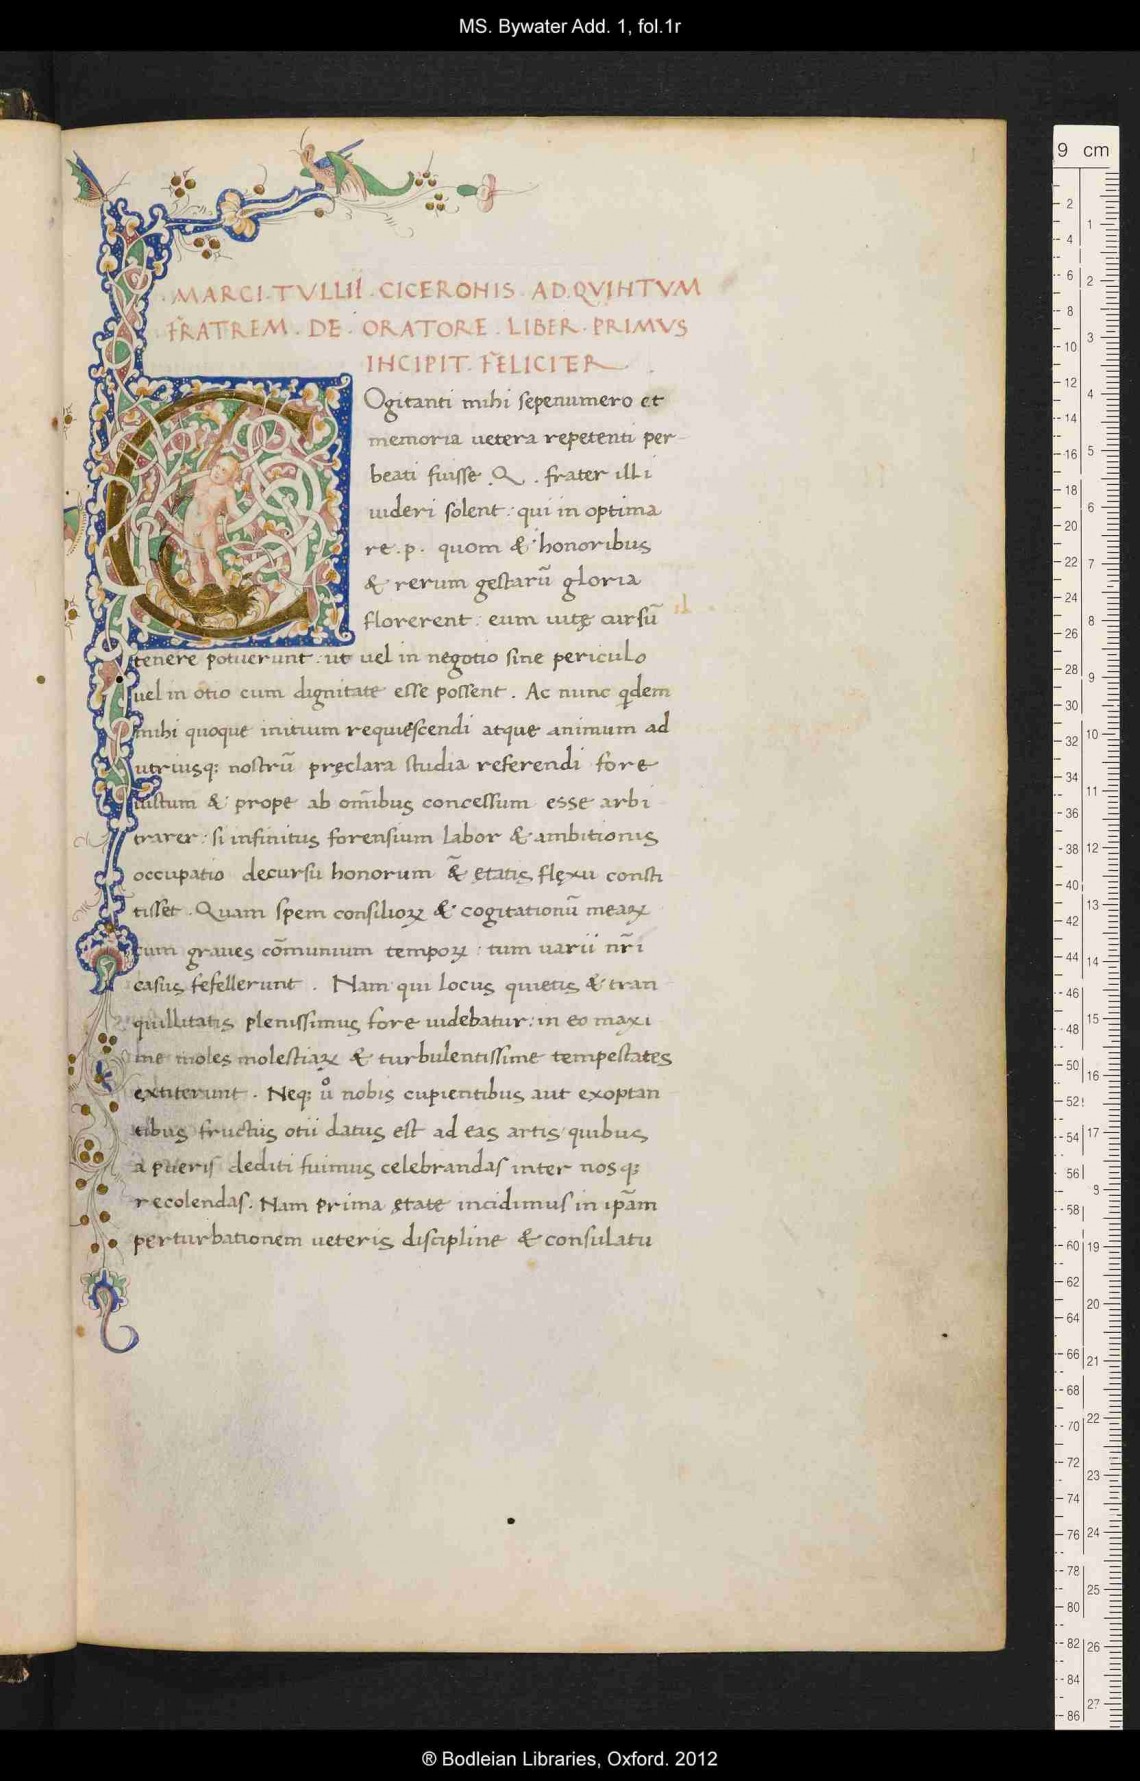 MS. Bywater Add. 1, fol.1r
1
MARCI·TVLLII·CICERONIS·AD·QVINTVM
FRATREM·DE·ORATORE·LIBER·PRIMVS
INCIPIT·FELICITER
COgitanti mihi sepenumero et
memoria uetera repetenti per
beati fuisse .Q. frater illi
uideri solent: qui in optima
re.p. quom & honoribus
& rerum gestarū gloria
florerent: eum uitę cursū
tenere potuerunt: ut uel in negotio sine periculo
uel in otio cum dignitate esse possent. Ac nunc qdem
mihi quoque initium requiescendi atque animum ad
utriusq; nostrū pręclara studia referendi fore
iustum & prope ab om̄ibus concessum esse arbi
trarer: si infinitus forensium labor & ambitionis
occupatio decursu honorum & ętatis flęxu consti
tisset. Quam spem consilioꝝ & cogitationū meaꝝ
cum graues cōmunium tempoꝝ: tum varii nr̄i
casus fefellerunt. Nam qui locus quietis & tran
quillitatis plenissimus fore uidebatur: in eo maxi
me moles molestiaꝝ & turbulentissime tempestates
extiterunt. Neq; uº nobis cupientibus aut exoptan
tibus fructus otii datus est ad eas artis quibus
a pueris dediti fuimus celebrandas inter nos q;
recolendas. Nam prima ętate incidimus in ipām
perturbationem ueteris discipline & consulatu
9 cm
® Bodleian Libraries, Oxford. 2012